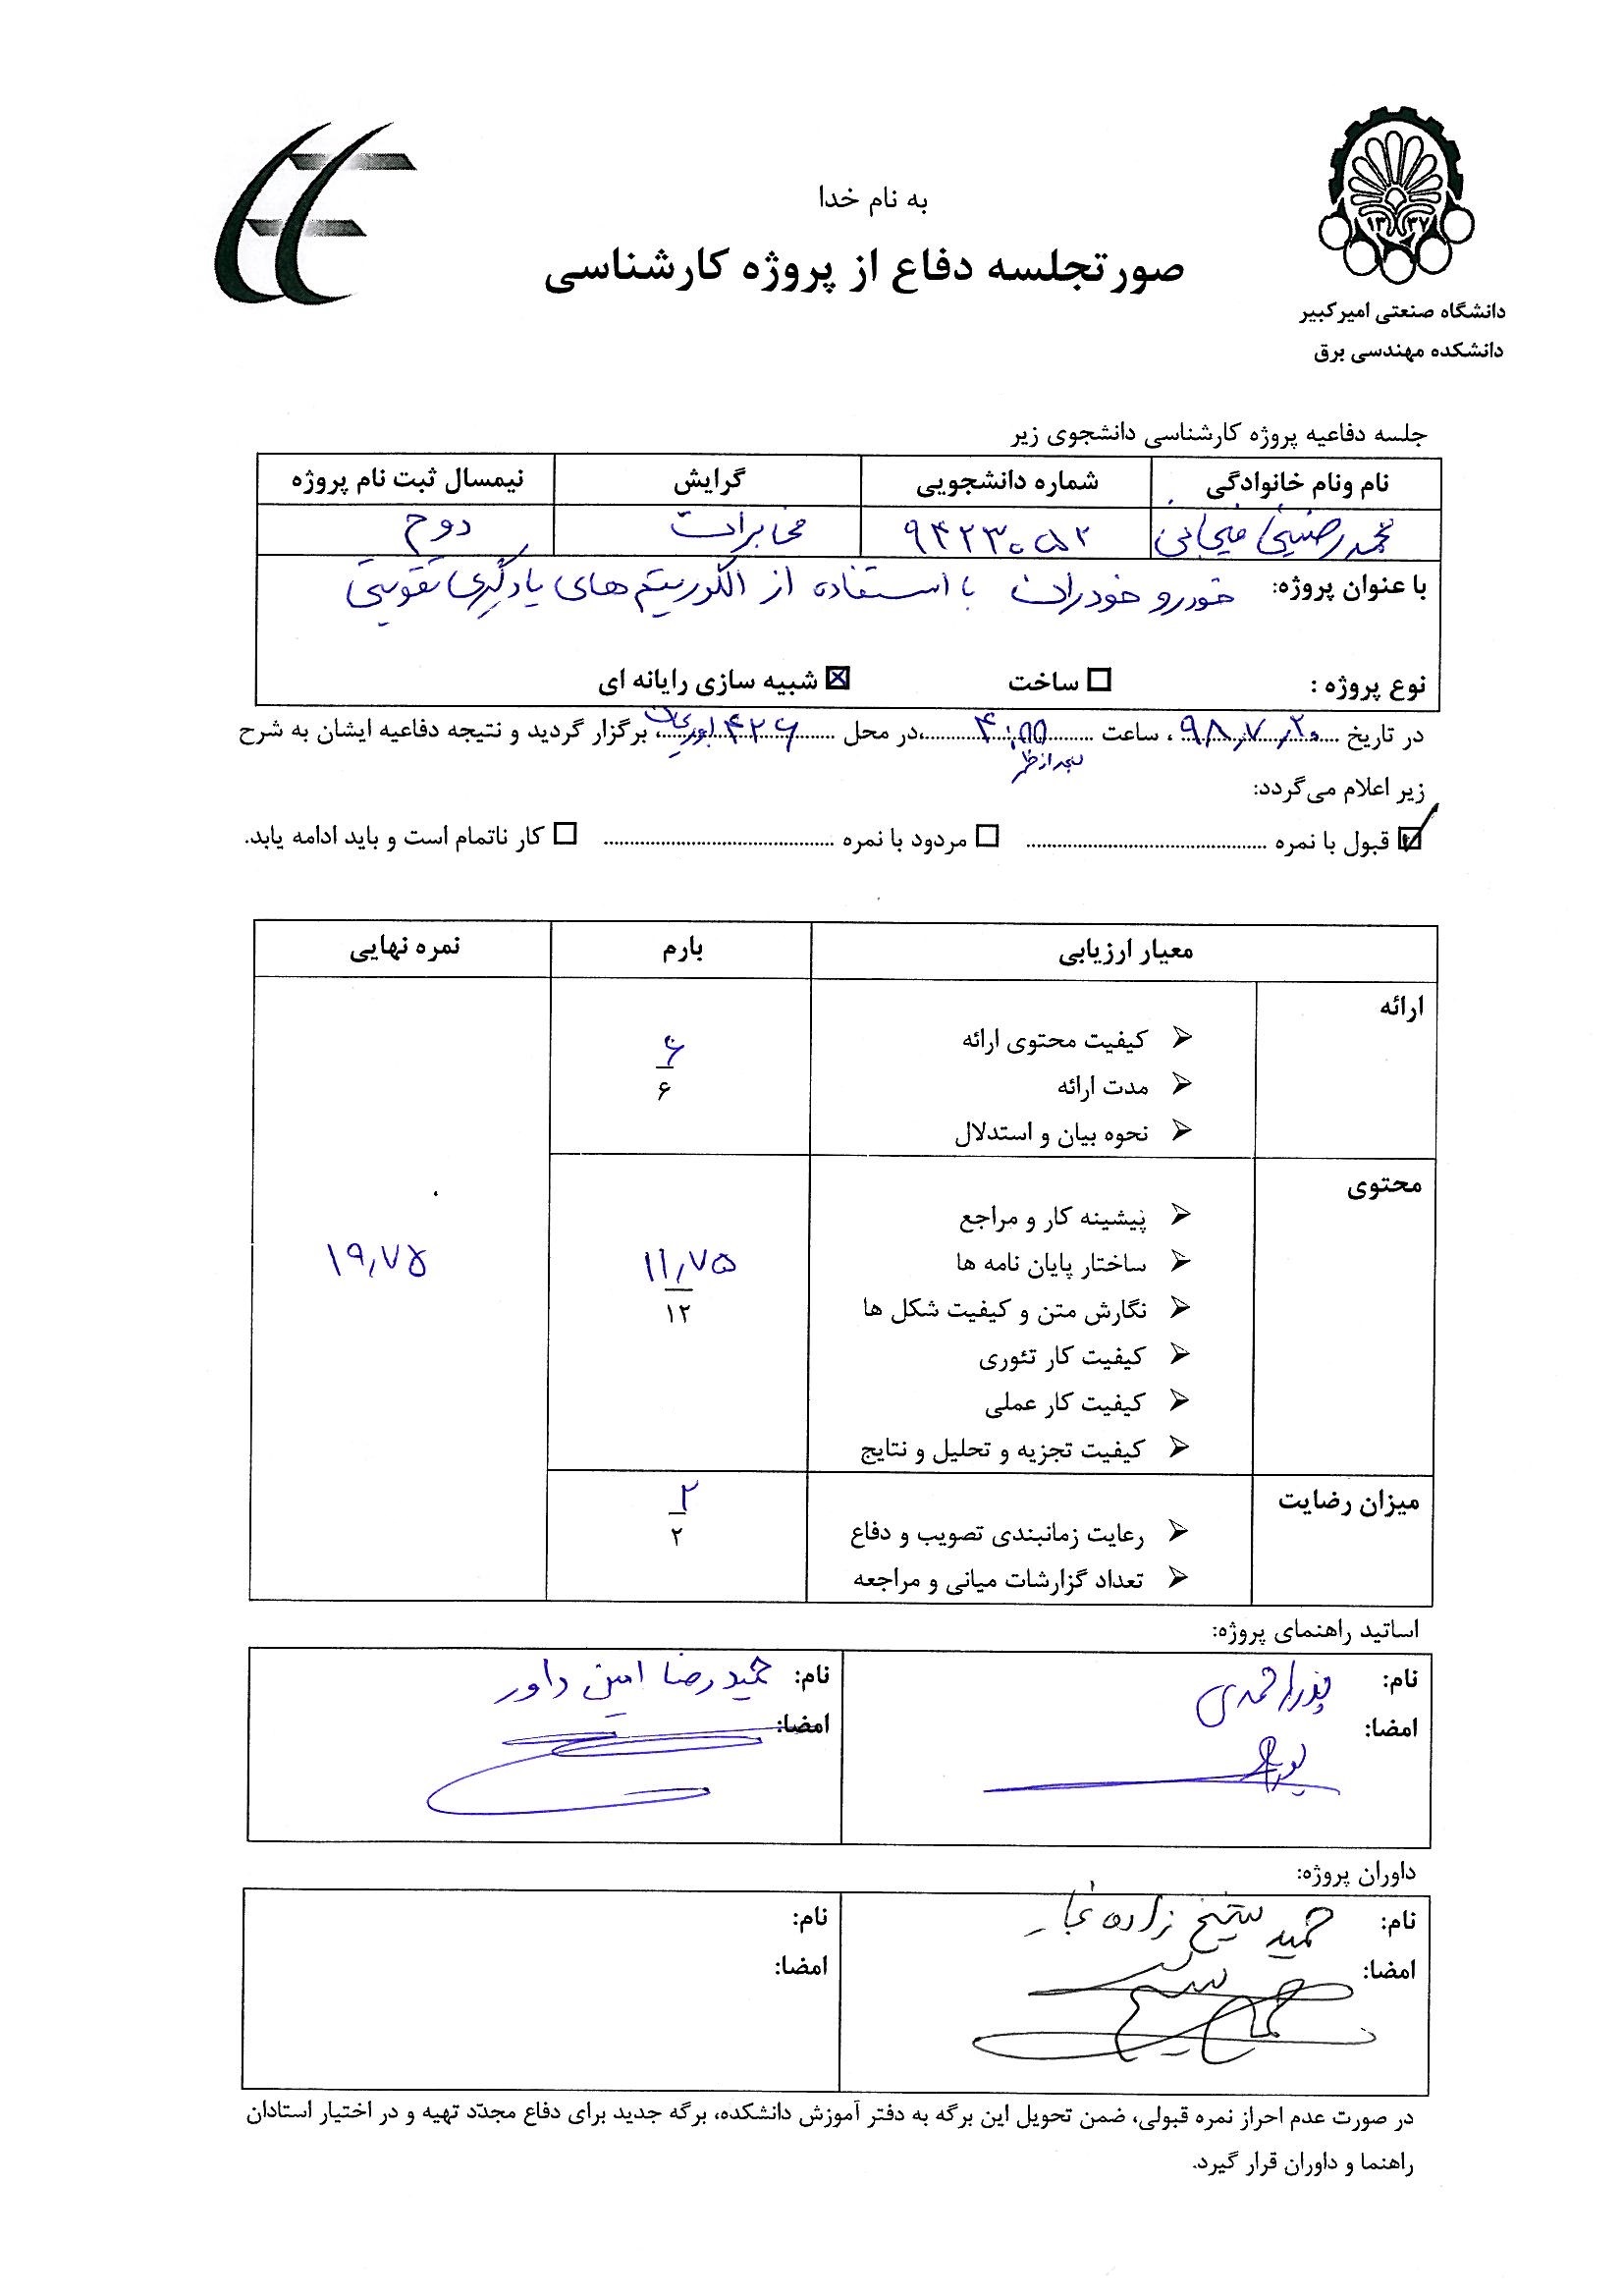 به نام خدا
صورتجلسه دفاع از پروژه کارشناسی
۱۳۳۷
دانشگاه صنعتی امیرکبیر
دانشکده مهندسی برق
جلسه دفاعیه پروژه کارشناسی دانشجوی زیر
نام ونام خانوادگی شماره دانشجویی گرایش نیمسال ثبت نام پروژه
محمدرضا ۹۴۲۳۰۵۲ مخابرات دوم
با عنوان پروژه: خودرو خودران با استفاده از الگوریتم های یادگیری تقویتی
نوع پروژه : ساخت شبیه سازی رایانه ای
در تاریخ ۹۸٫۷٫۲۰ ، ساعت ۴:۵۵ ،در محل ۴۲۶ ابوریحان، برگزار گردید و نتیجه دفاعیه ایشان به شرح
بعد از ظهر
زیر اعلام می‌گردد:
قبول با نمره .......... مردود با نمره .......... کار ناتمام است و باید ادامه یابد.
معیار ارزیابی بارم نمره نهایی
ارائه
کیفیت محتوی ارائه
۶
مدت ارائه
۶
نحوه بیان و استدلال
محتوی
پیشینه کار و مراجع
ساختار پایان نامه ها ۱۱٫۷۵ ۱۹٫۷۵
نگارش متن و کیفیت شکل ها ۱۲
کیفیت کار تئوری
کیفیت کار عملی
کیفیت تجزیه و تحلیل و نتایج
میزان رضایت ۲
رعایت زمانبندی تصویب و دفاع ۲
تعداد گزارشات میانی و مراجعه
اساتید راهنمای پروژه:
نام: پوراحمدی نام: حمیدرضا امین داور
امضا: امضا:
داوران پروژه:
نام: حمید شیخ زاده نجار نام:
امضا: امضا:
در صورت عدم احراز نمره قبولی، ضمن تحویل این برگه به دفتر آموزش دانشکده، برگه جدید برای دفاع مجدّد تهیه و در اختیار استادان
راهنما و داوران قرار گیرد.